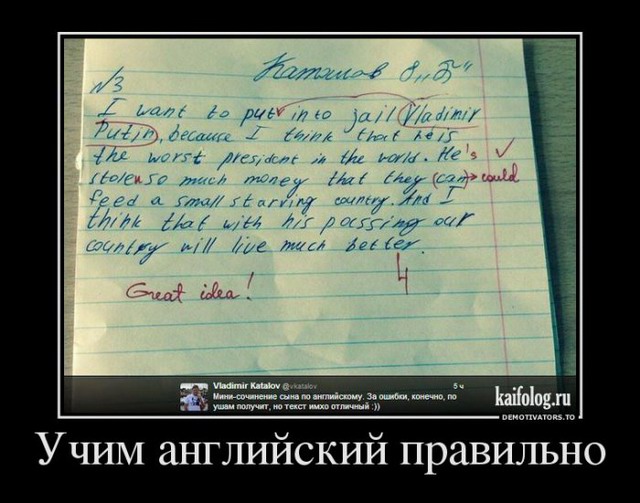 Катошов 8 „Б“
№3
I want to put into jail Vladimir
Putin, because I think that he is
the worst president in the world. He's
stolen so much money that they (can) → could
feed a small starving country. And I
think that with his passing our
country will live much better.
Great idea!
4
Vladimir Katalov @vkatalov 5 ч
Мини-сочинение сына по английскому. За ошибки, конечно, по
ушам получит, но текст имхо отличный :))
kaifolog.ru
DEMOTIVATORS.TO
Учим английский правильно